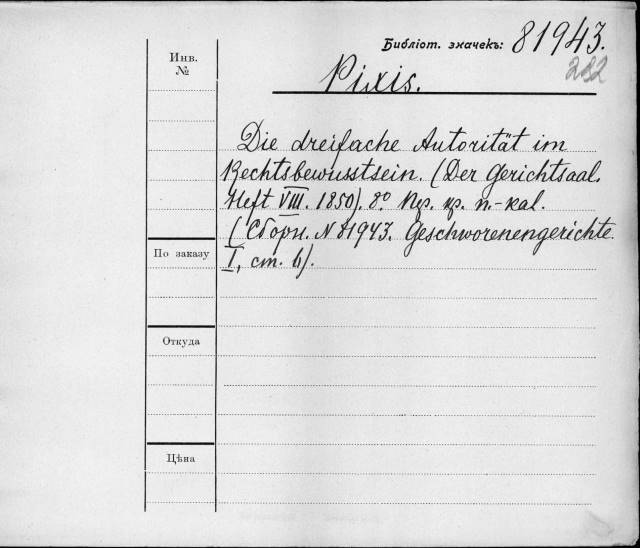 Библіот. значекъ: 81943.
282
Pixis.
Инв.
№
Die dreifache Autorität im
Rechtsbewusstsein. (Der Gerichtsaal.
Heft VIII. 1850). 8º Пер. кр. п.-кал.
(Сборн. № 81943. Geschworenengerichte
I, ст. 6).
По заказу
Откуда
Цѣна